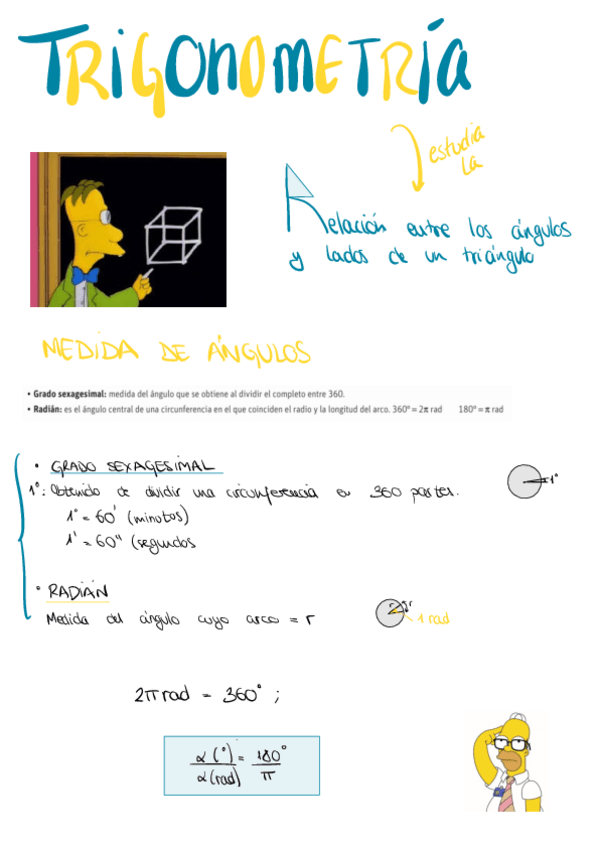 TRIGONOMETRÍA
estudia
La
Relación entre los ángulos
y lados de un triángulo
MEDIDA DE ÁNGULOS
• Grado sexagesimal: medida del ángulo que se obtiene al dividir el completo entre 360.
• Radián: es el ángulo central de una circunferencia en el que coinciden el radio y la longitud del arco. 360° = 2π rad 180° = π rad
• GRADO SEXAGESIMAL
1°: Obtenido de dividir una circunferencia en 360 partes.
1°
1° = 60' (minutos)
1' = 60'' (segundos
• RADIÁN
Medida del ángulo cuyo arco = r
r
1 rad
2π rad = 360° ;
α (°) = 180°
α (rad) π